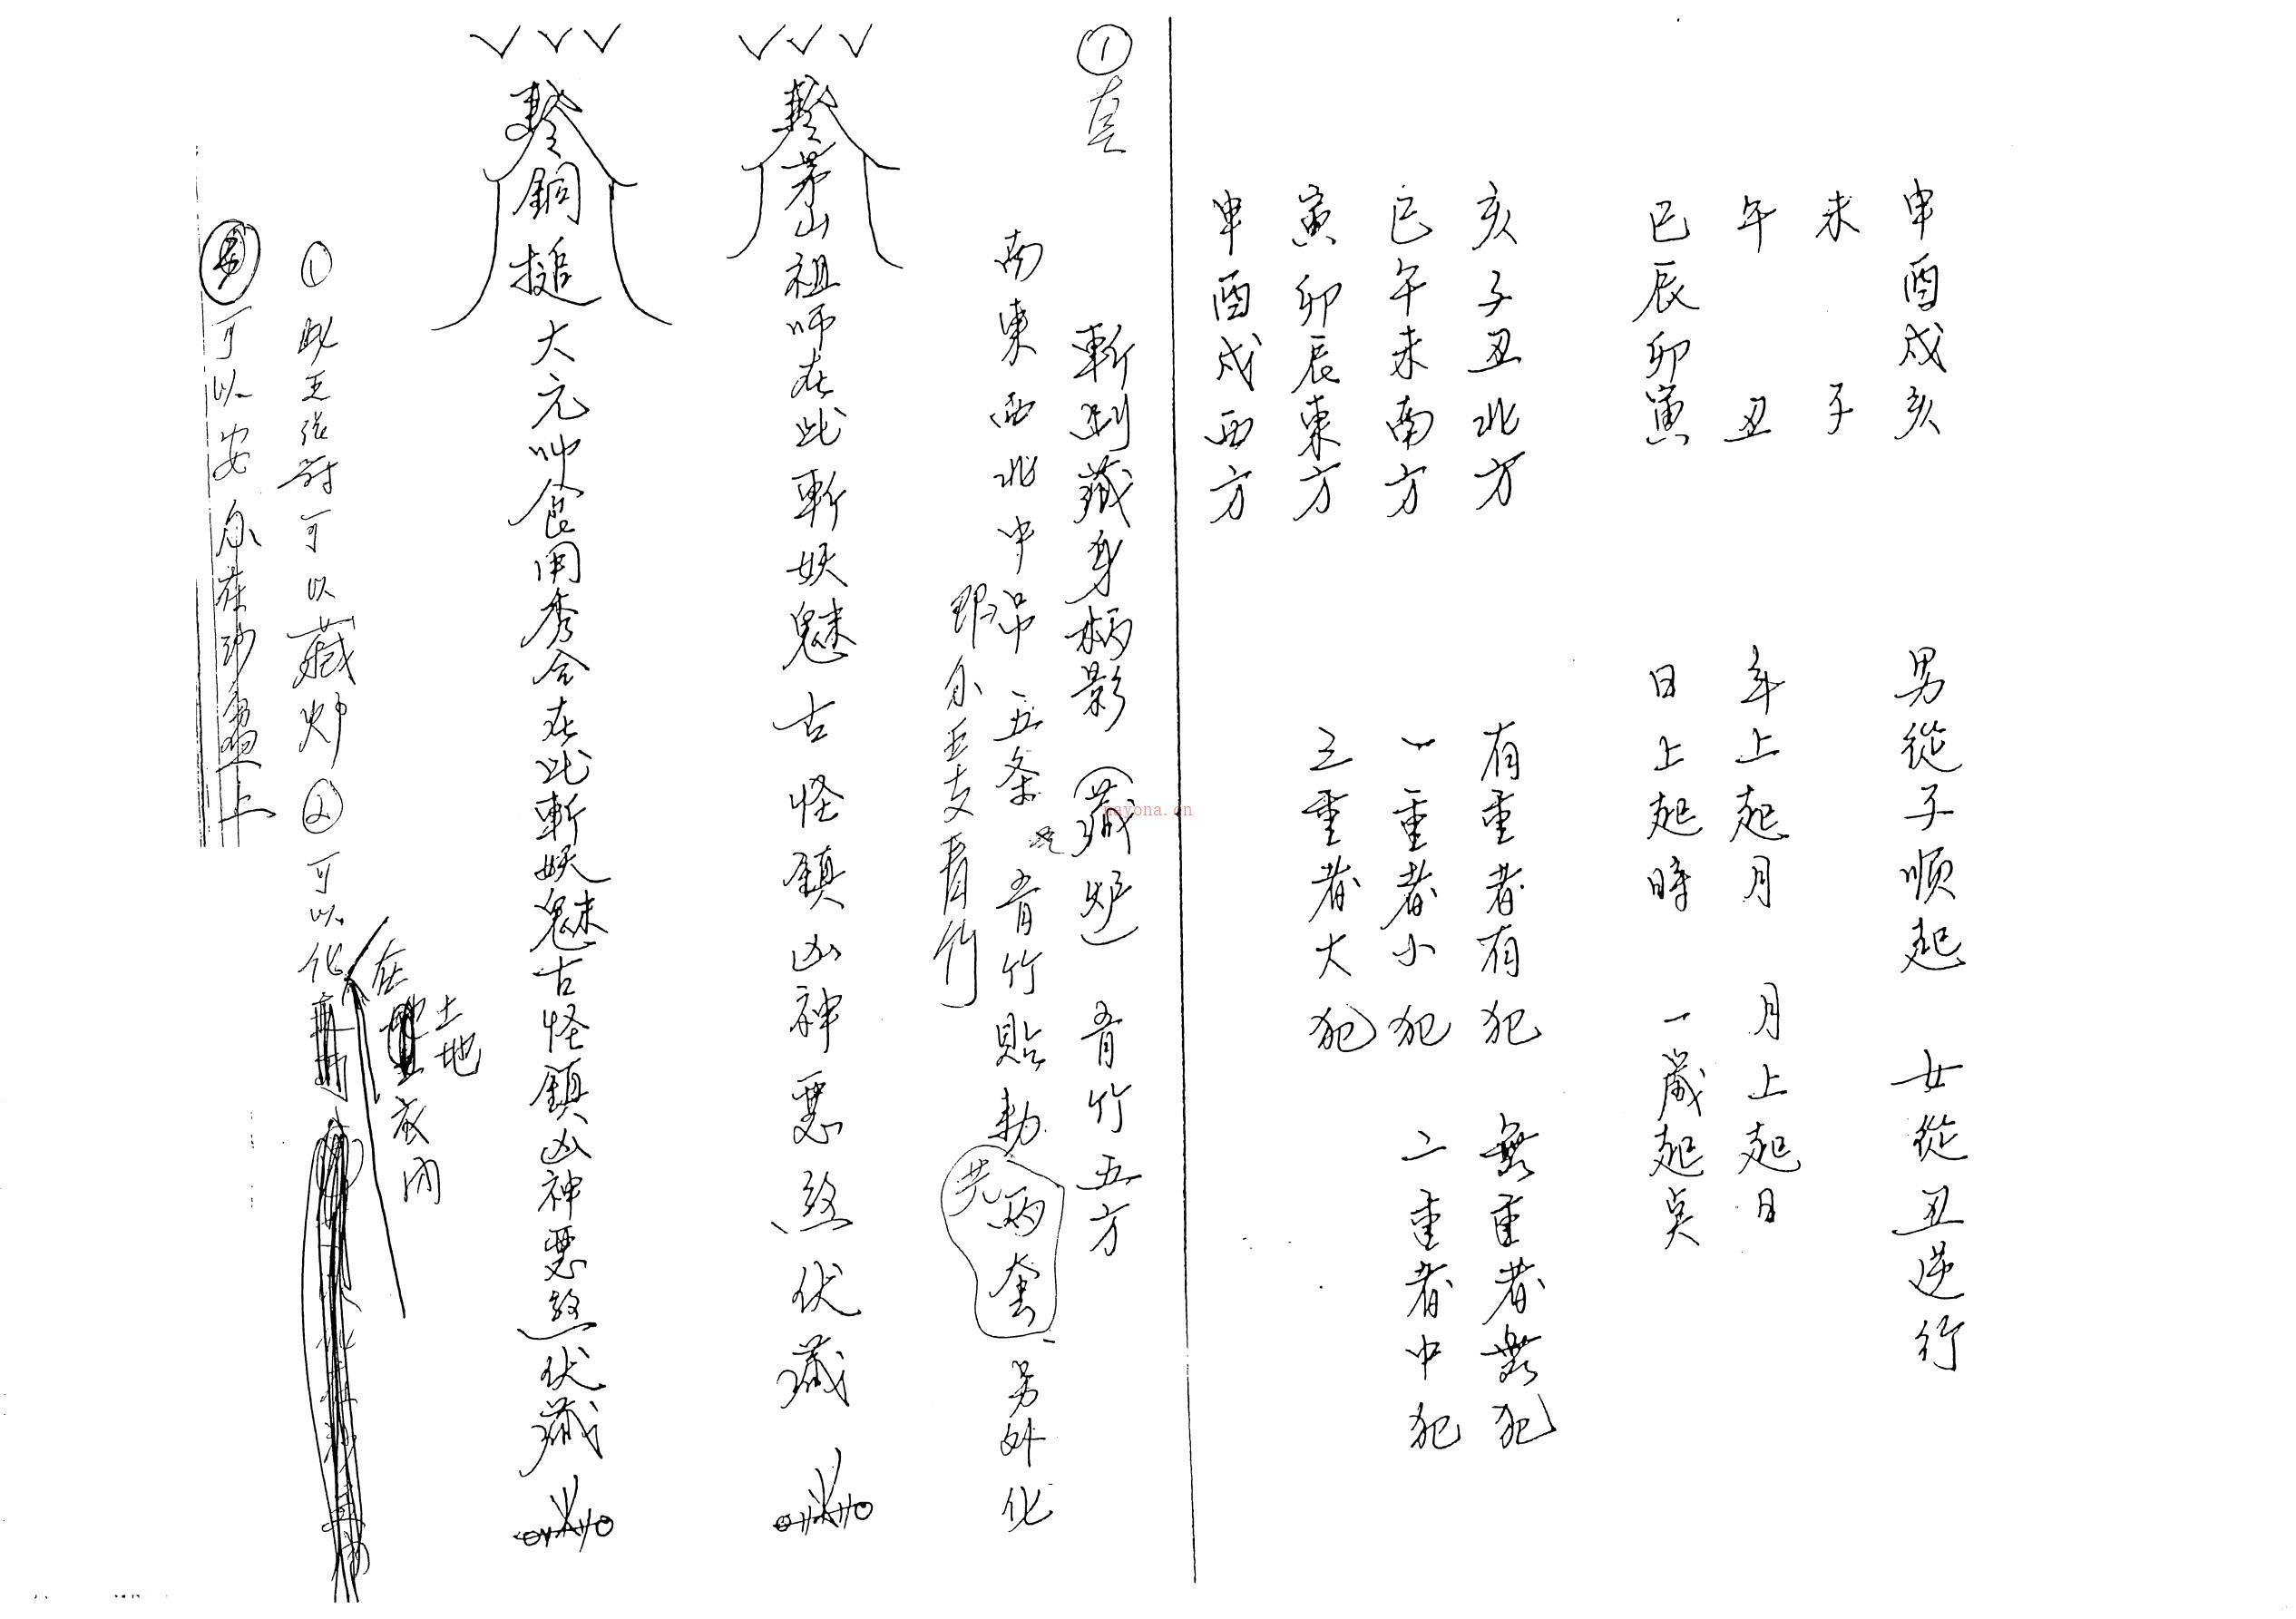 申酉戌亥
未　子
午　丑
巳辰卯寅
男從子順起　女從丑逆行
年上起月　月上起日
日上起時　一歲起寅
亥子丑北方
巳午未南方
寅卯辰東方
申酉戌西方
有重者有犯　無重者無犯
一重者小犯　二重者中犯
三重者大犯
①真
斬制藏身柄影（藏炉）青竹五方
南東西北中吊五条 青竹貼勅 共兩套 另外化
即五支青竹
茅山祖师在此斬妖魅古怪鎮凶神惡煞伏藏
銅搥大元帅食用秀令在此斬妖魅古怪鎮凶神惡煞伏藏
在土地
①此王張符可以藏炉②可以化
可以安 在 上
nayona.cn